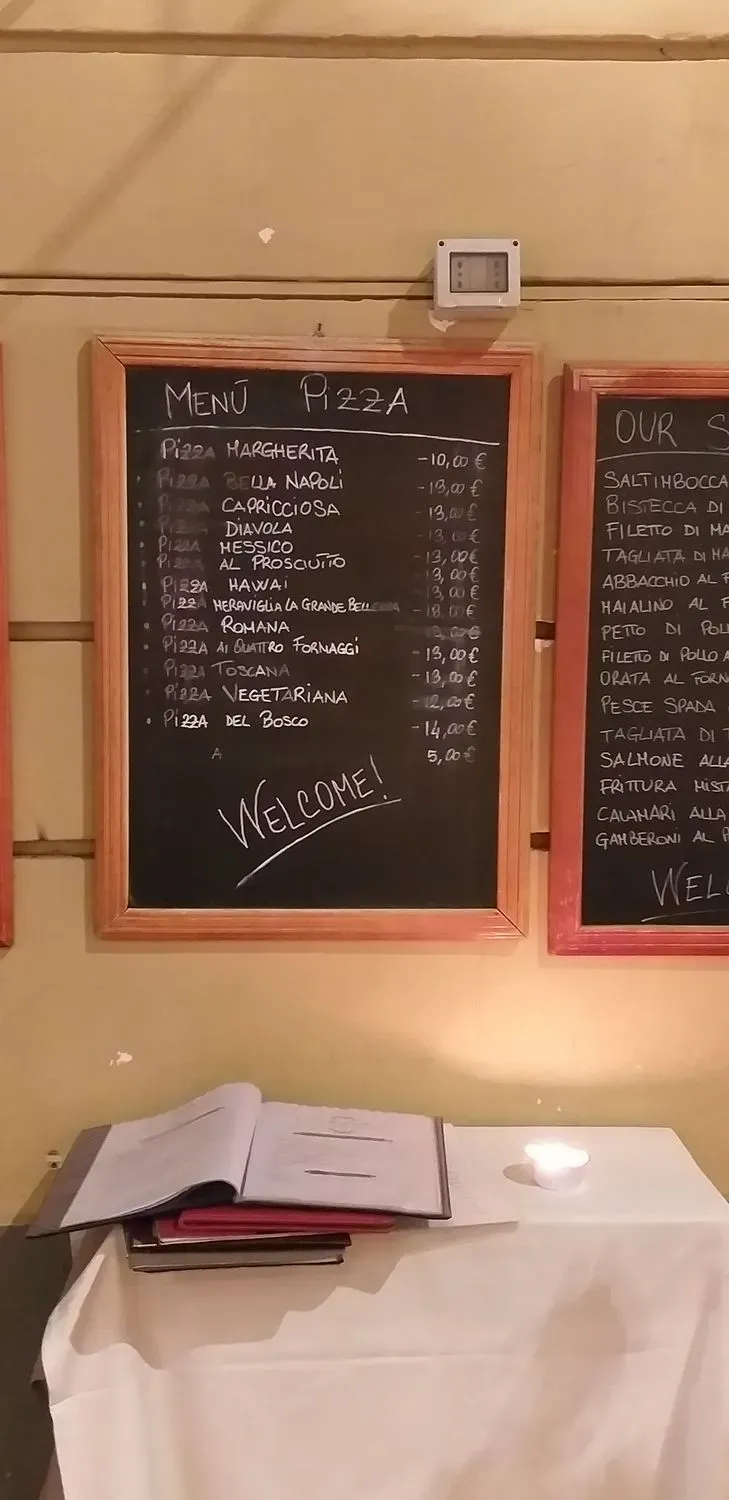 MENÙ PIZZA
PIZZA MARGHERITA -10,00 €
PIZZA BELLA NAPOLI -13,00 €
PIZZA CAPRICCIOSA -13,00 €
PIZZA DIAVOLA -13,00 €
PIZZA MESSICO -13,00 €
PIZZA AL PROSCIUTTO -13,00 €
PIZZA HAWAI -13,00 €
PIZZA MERAVIGLIA LA GRANDE BELLEZZA -18,00 €
PIZZA ROMANA -13,00 €
PIZZA AI QUATTRO FORMAGGI -13,00 €
PIZZA TOSCANA -13,00 €
PIZZA VEGETARIANA -12,00 €
PIZZA DEL BOSCO -14,00 €
A 5,00 €
WELCOME!
OUR S
SALTIMBOCCA
BISTECCA DI
FILETTO DI MA
TAGLIATA DI MA
ABBACCHIO AL F
MAIALINO AL F
PETTO DI POLL
FILETTO DI POLLO A
ORATA AL FORN
PESCE SPADA
TAGLIATA DI T
SALMONE ALLA
FRITTURA MIST
CALAMARI ALLA
GAMBERONI AL P
WELC